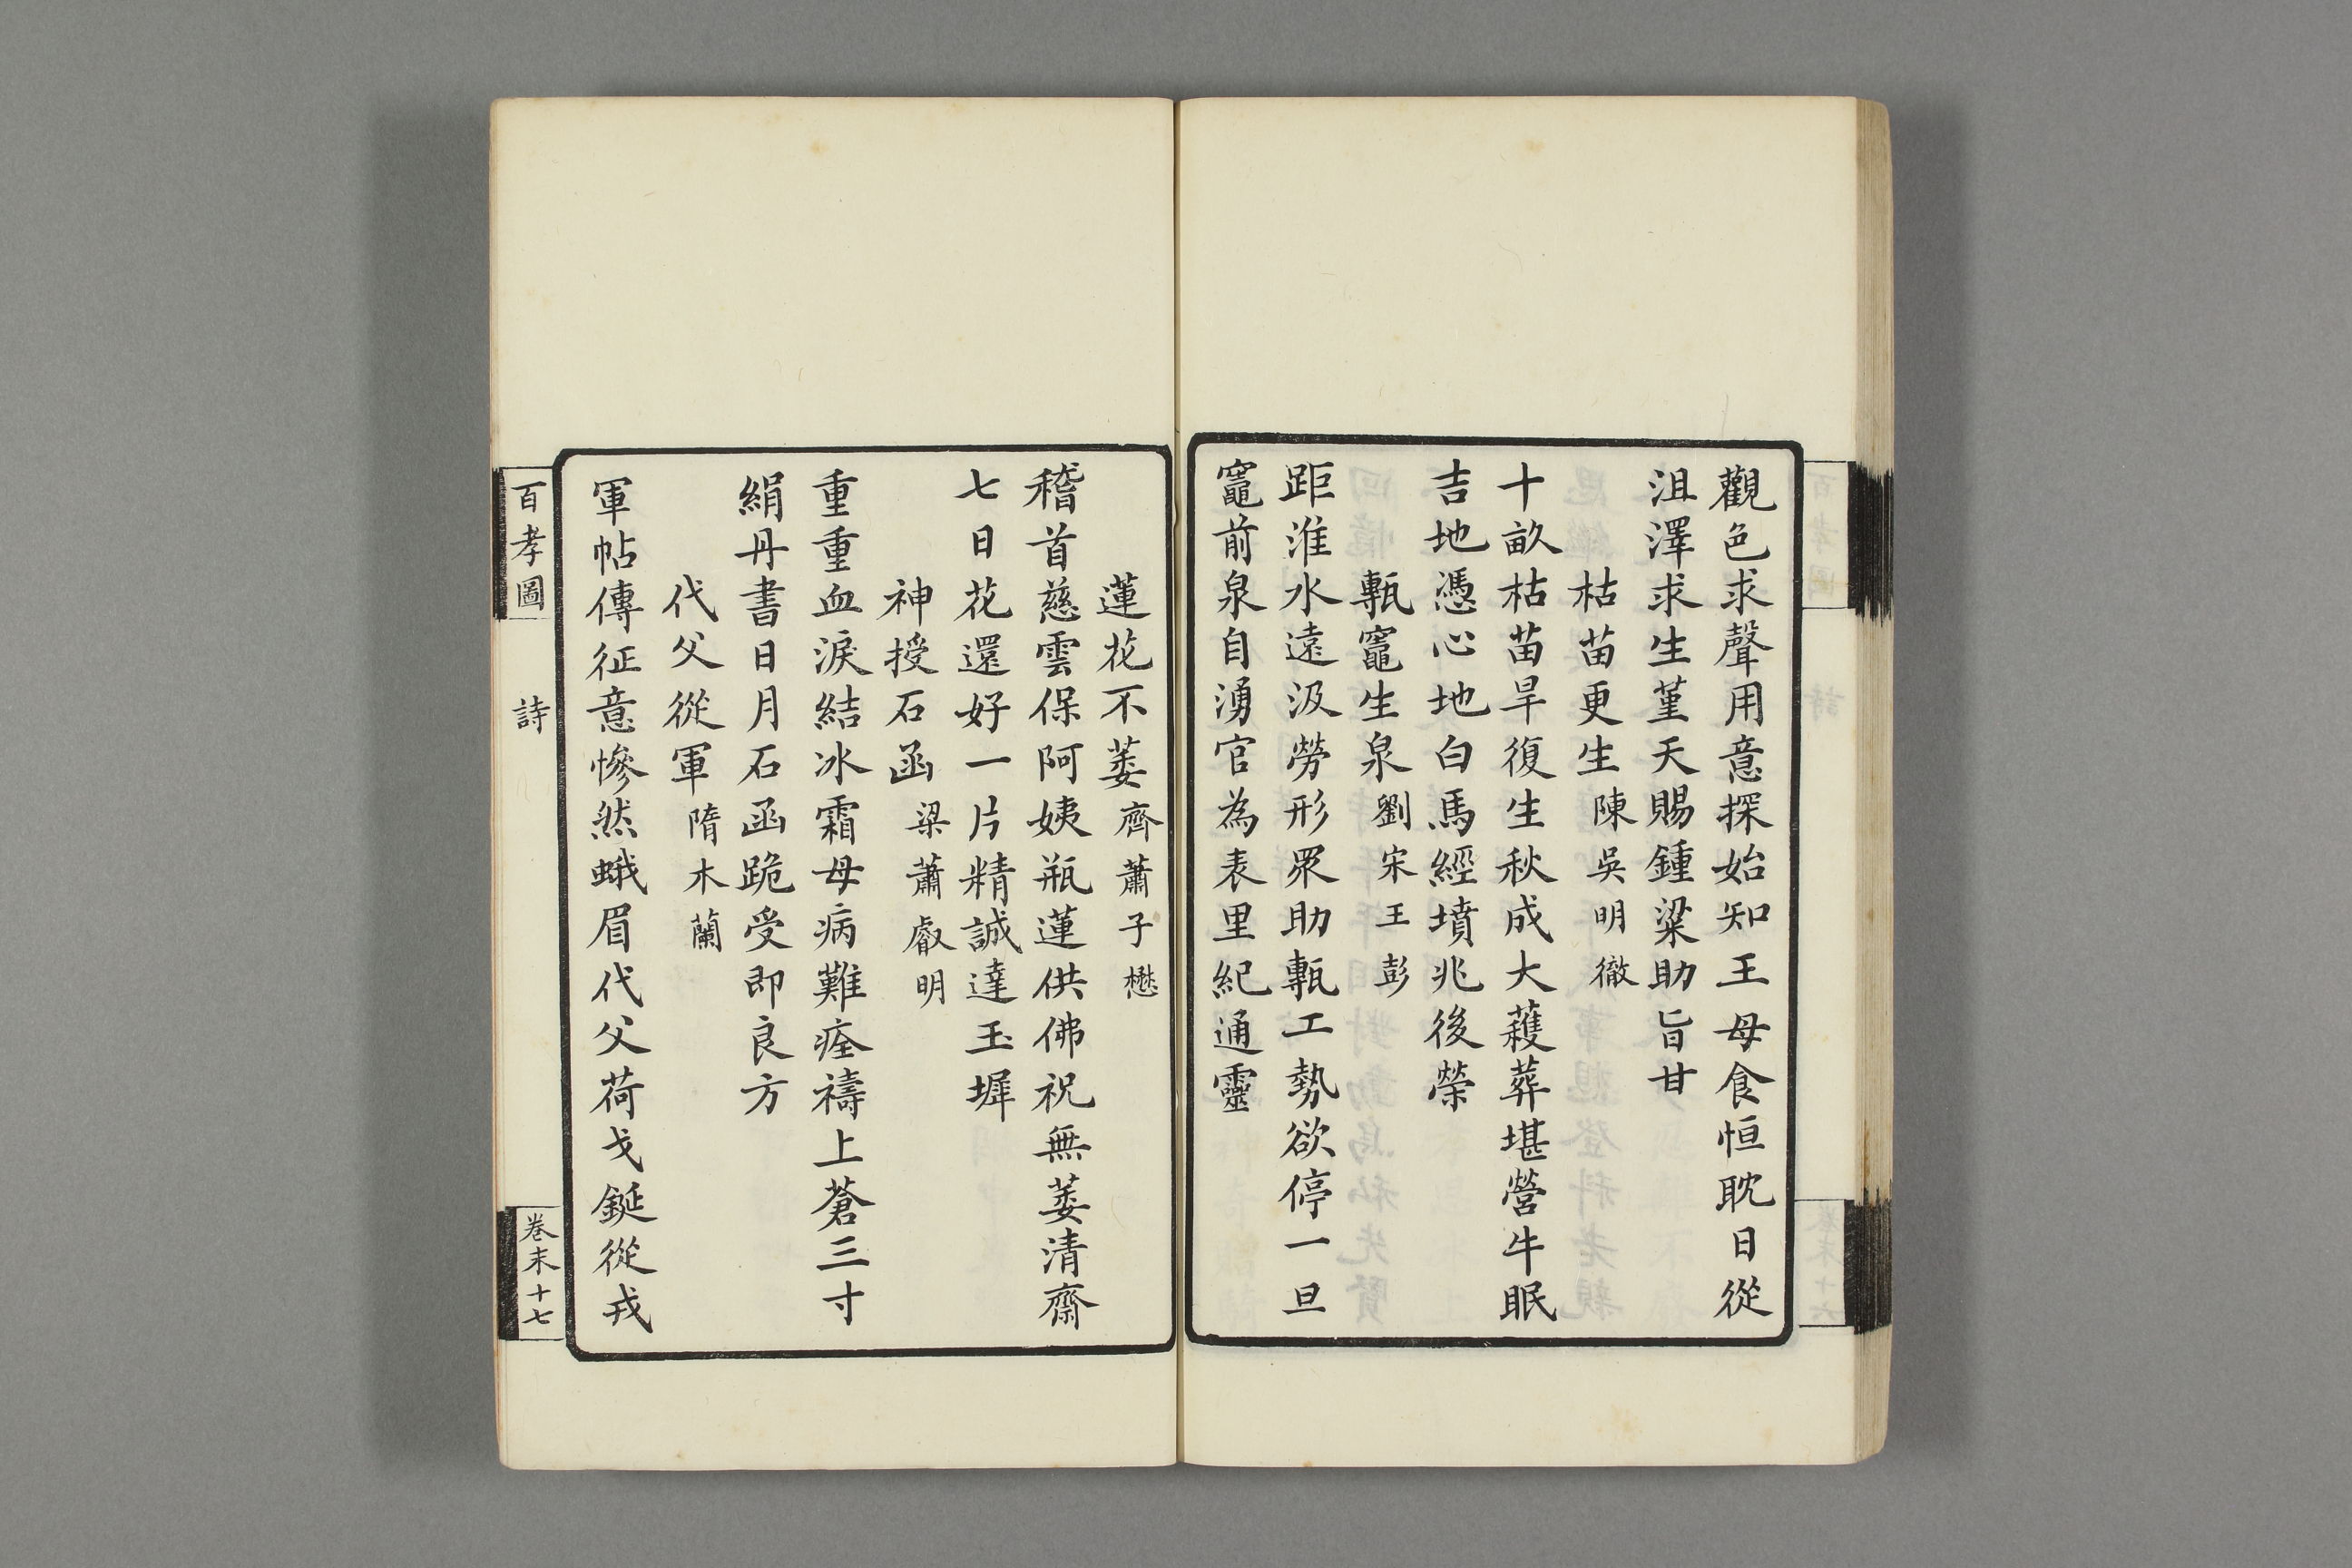 觀色求聲用意探始知王母食恒耽日從
沮澤求生堇天賜鍾粱助旨甘
枯苗更生 陳吳明徹
十畝枯苗旱復生秋成大穫葬堪營牛眠
吉地憑心地白馬經墳兆後榮
甎竈生泉 劉宋王彭
距淮水遠汲勞形眾助甎工勢欲停一旦
竈前泉自湧官為表里紀通靈
蓮花不萎 齊蕭子懋
稽首慈雲保阿姨瓶蓮供佛祝無萎清齋
七日花還好一片精誠達玉墀
神授石函 梁蕭叡明
重重血淚結冰霜母病難痊禱上蒼三寸
絹丹書日月石函跪受即良方
代父從軍 隋木蘭
軍帖傳征意慘然蛾眉代父荷戈鋋從戎
百孝圖 詩 卷末十七